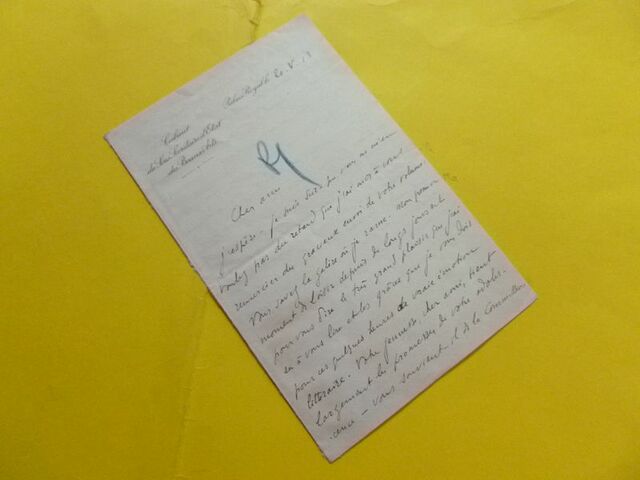 Cabinet
du Sous-Secrétaire d'Etat
des Beaux-Arts
Palais-Royal, le 20. V. 13
R
Cher ami
J'espère – je suis sûr que vous ne m'en
voulez pas du retard que j'ai mis à vous
remercier du gracieux envoi de votre volume.
Vous savez la galère où je rame. Mon premier
moment de loisir depuis de longs jours est
pour vous dire le très grand plaisir que j'ai
eu à vous lire et les grâces que je vous dois
pour ces quelques heures de vraie émotion
littéraire. Votre jeunesse, cher ami, tient
largement les promesses de votre
– vous souvient-il de la